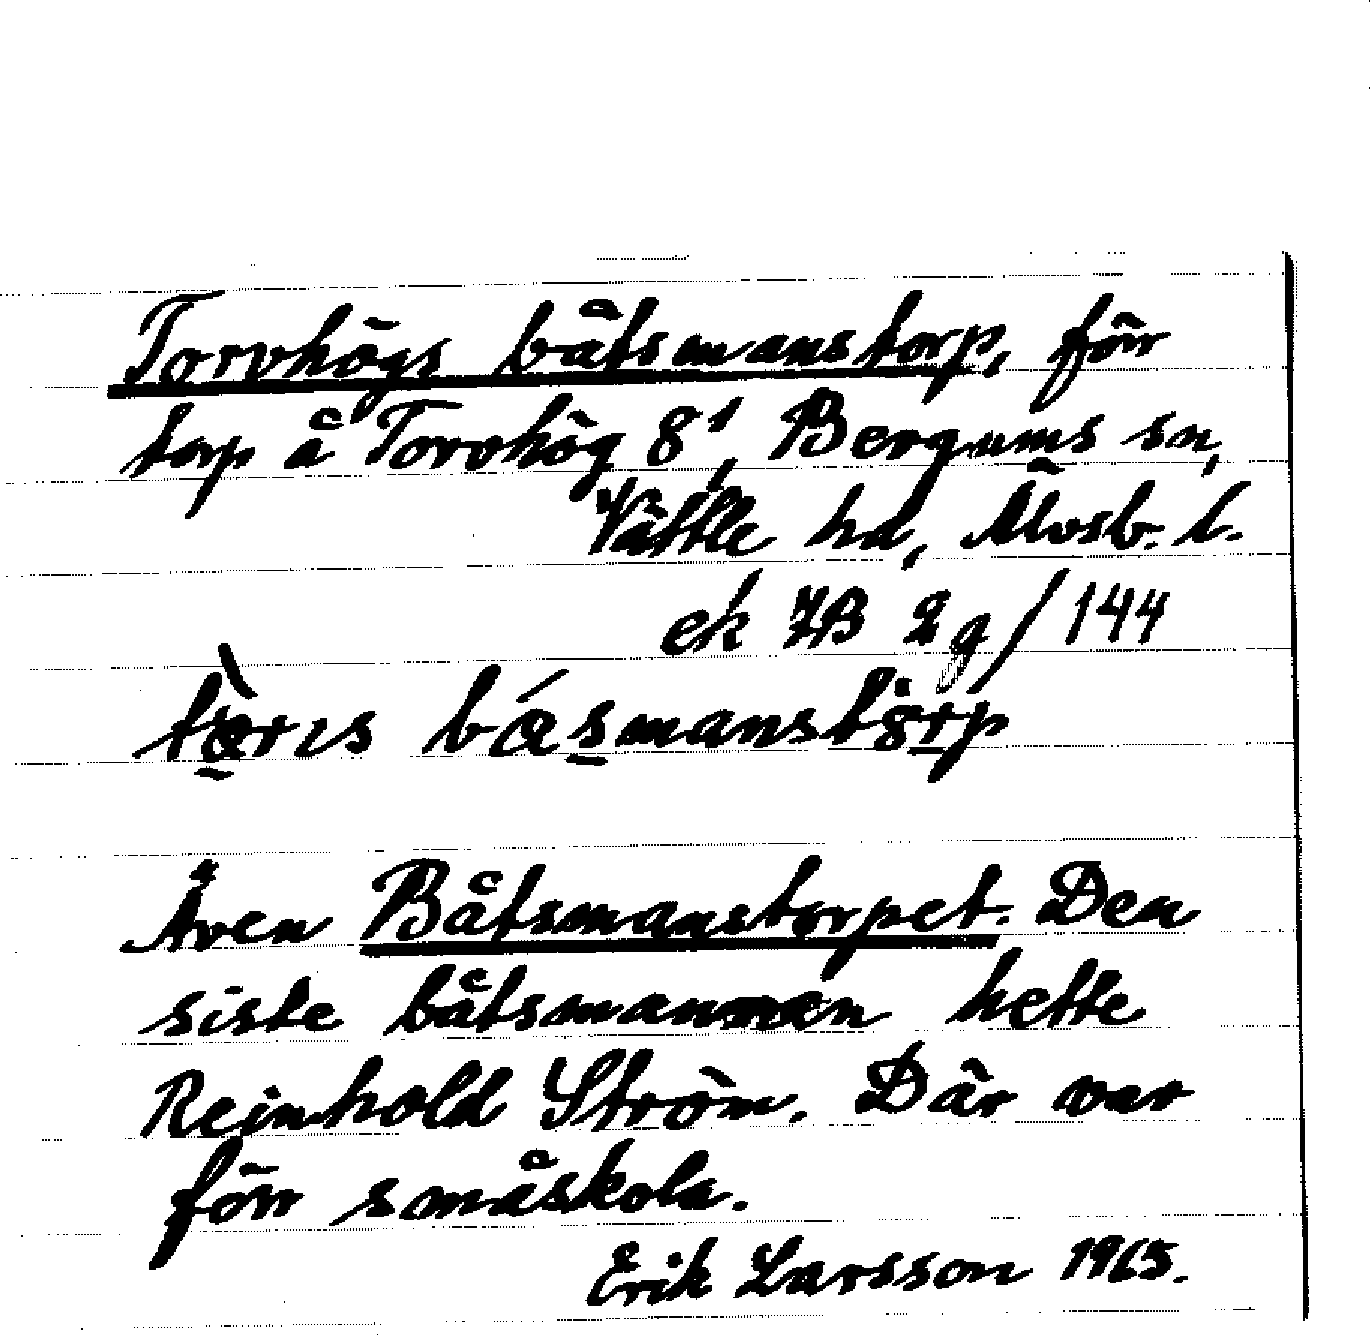 Torvhögs båtsmanstorp, förr
torp å Torvhög 8¹, Bergums sn,
Vättle hd, Älvsb. l.
ek 7B 2g/144
båsmanstörp
Även Båtsmanstorpet. Den
siste båtsmannen hette
Reinhold Ström. Där var
förr småskola.
Erik Larsson 1965.